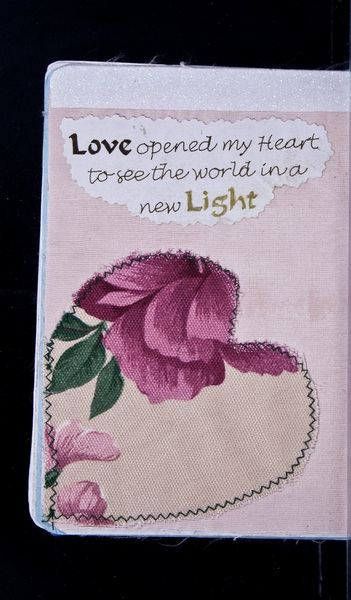 Love opened my Heart
to see the world in a
new Light